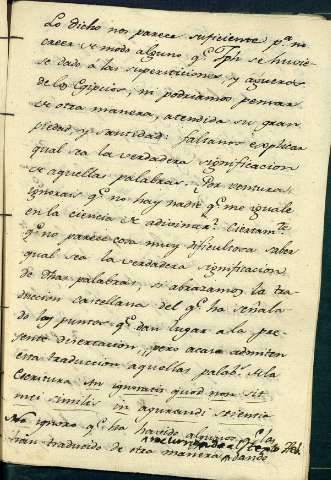 Lo dicho nos parece suficiente p.ª no
creer de modo alguno q.e Jph se hubie
se dado a las supersticiones, y agueros
de los Egipcios; ni podriamos pensar
de otra manera, atendida su gran
piedad, y santidad: faltanos explicar
qual sea la verdadera significacion
de aquellas palabras. Por ventura
ignorais q.e no hay nadie q.e me iguale
en la ciencia de adivinar? Ciertam.te
q.e no parece cosa muy dificultosa saber
qual sea la verdadera significacion
de dhas palabras, si abrazamos la tra
duccion castellana del q.e ha señala
do los puntos q.e dan lugar a la pre
sente disertacion, pero acaso admiten
esta traduccion aquellas palab.s de la
Escritura An ignoratis quod non sit
mei similis in augurandi scientia
No ignoro q.e ha havido algunos q.e las
han traducido de otra manera, dando